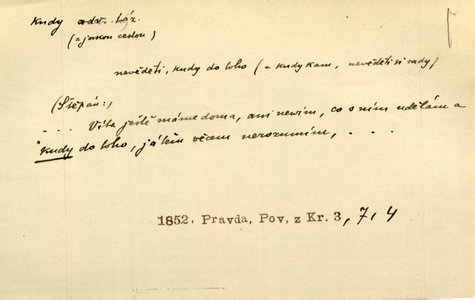 kudy adv. táz.
(= jakou cestou)
nevěděti, kudy do toho (= kudy kam, nevěděti si rady)
(Štěpán:)
... Víta ještě máme doma, ani nevím, co s ním udělám a
kudy do toho, já těm věcem nerozumím, ...
1852. Pravda, Pov. z Kr. 3, 7, 4